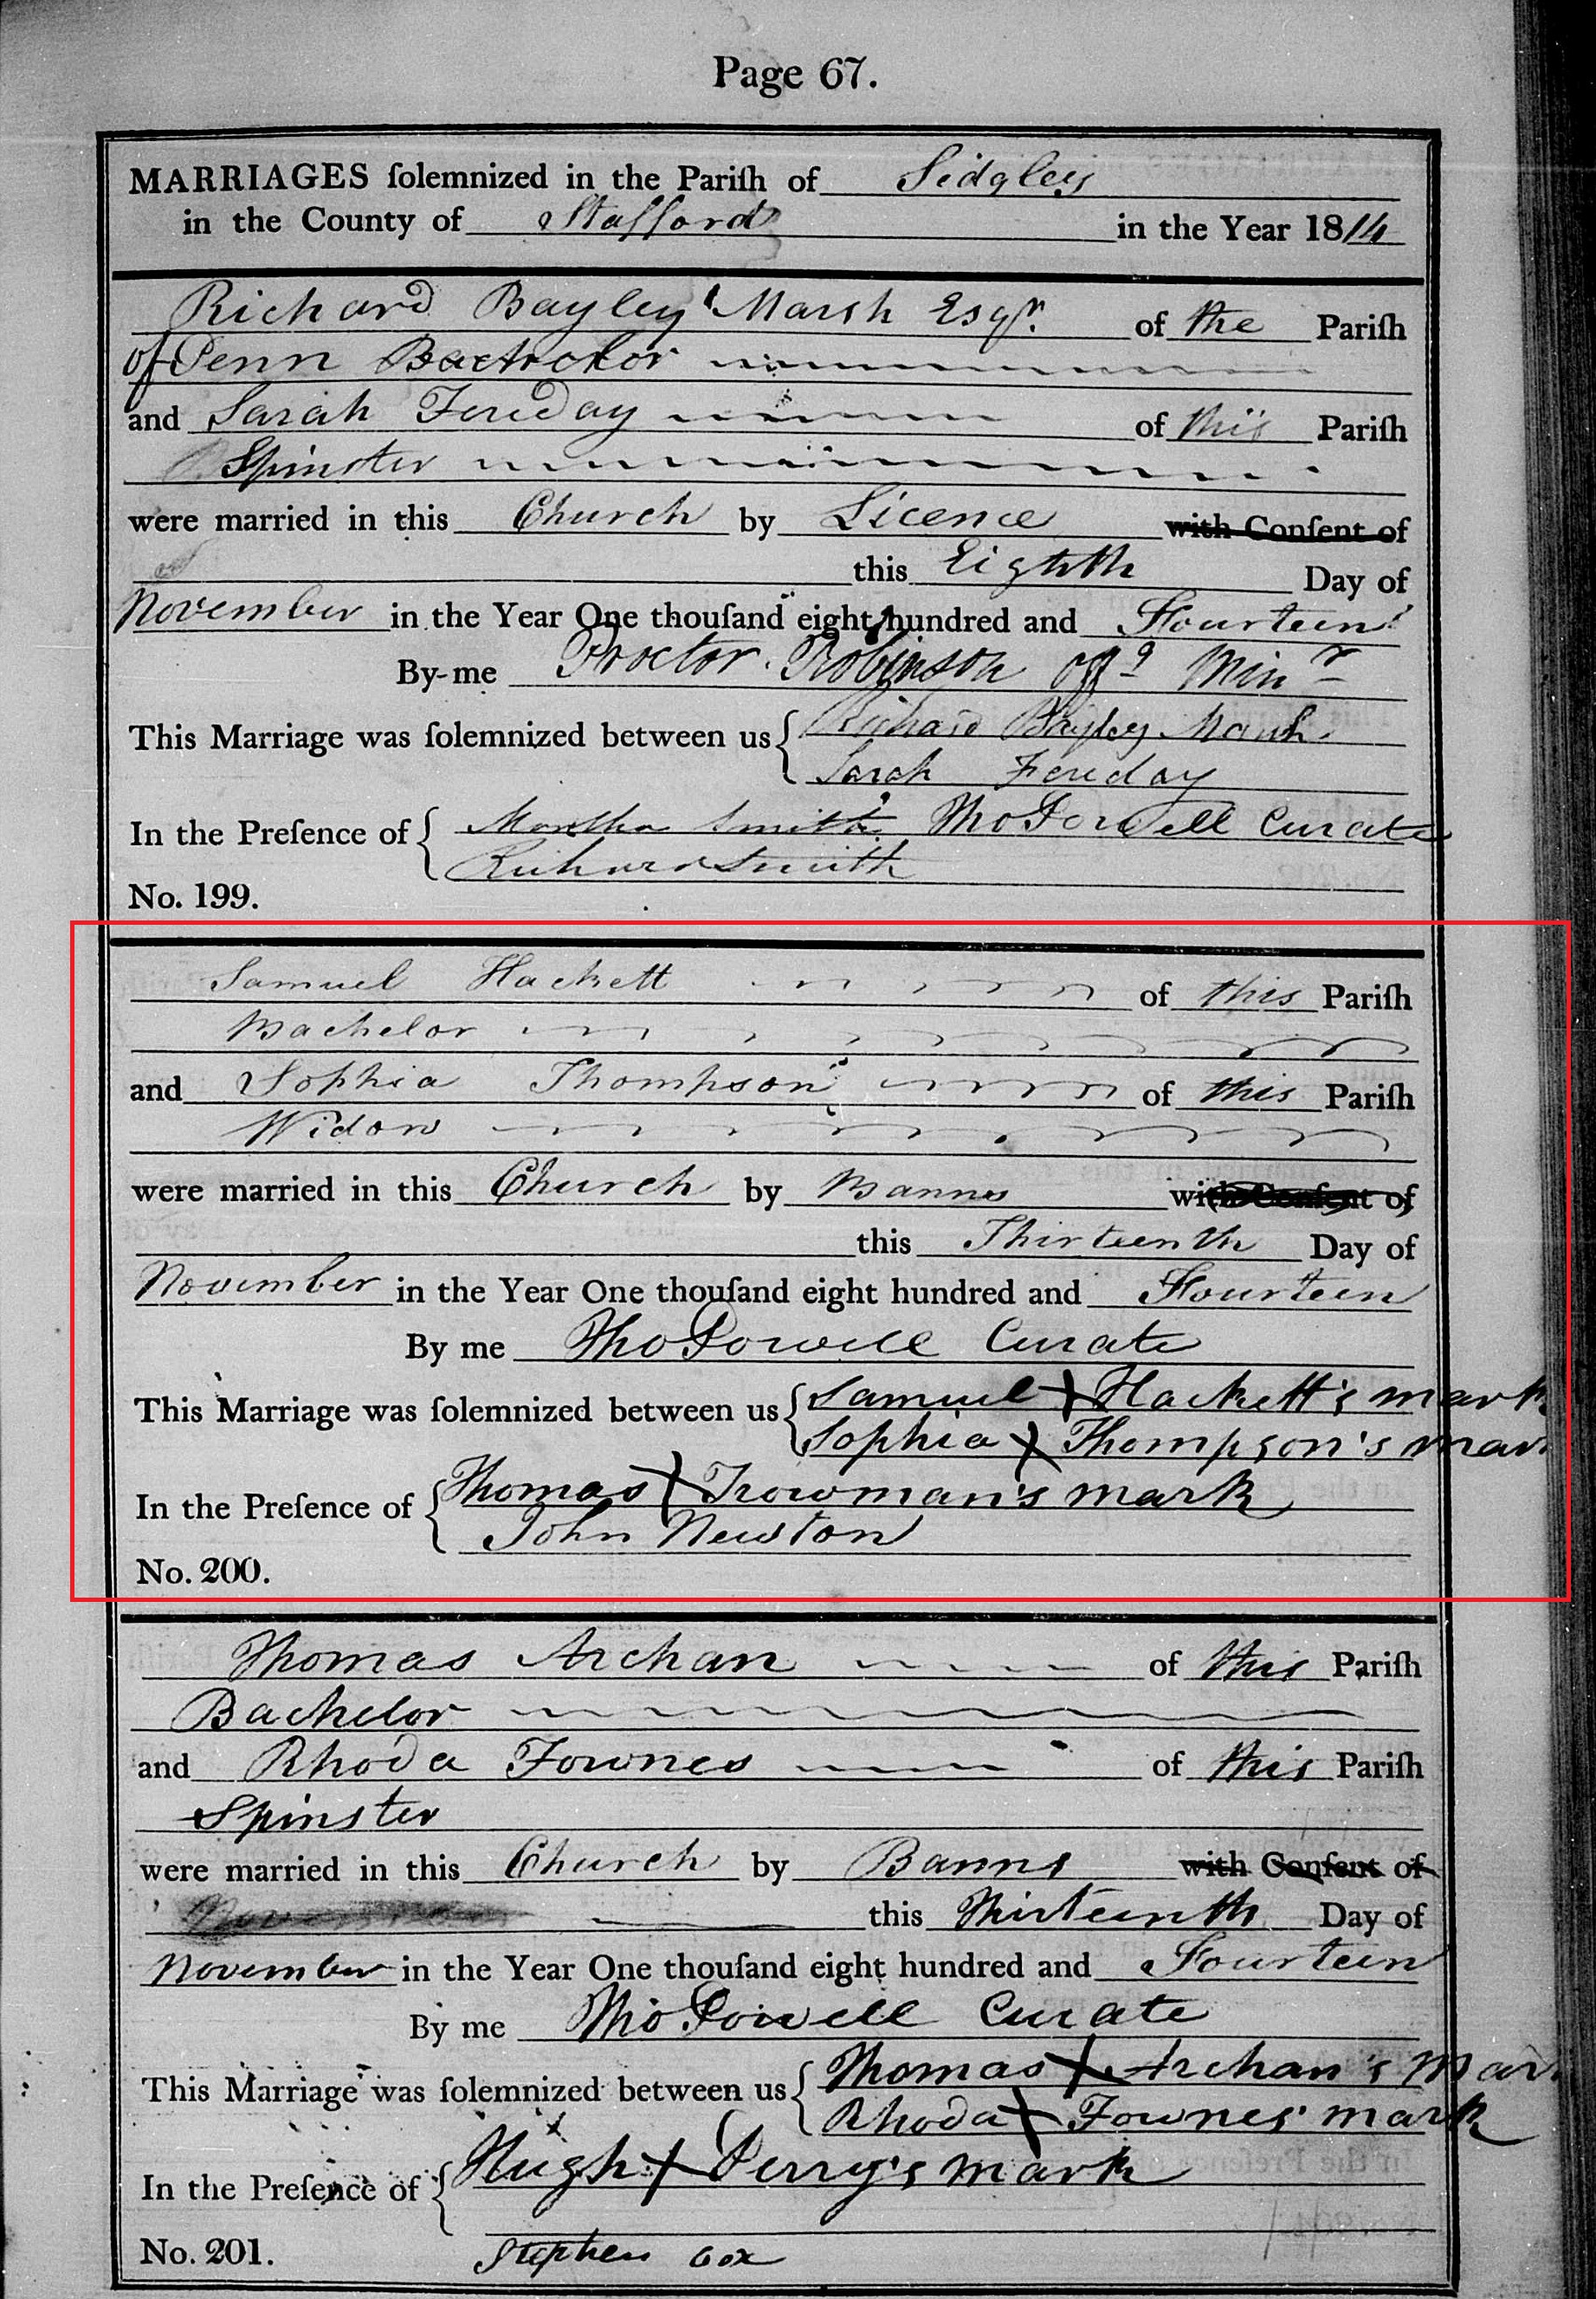 Page 67.
MARRIAGES ſolemnized in the Pariſh of Sidgley
in the County of Stafford in the Year 1814
Richard Bayley Marsh Esqr. of the Pariſh
of Penn Bachelor
and Sarah Fereday of this Pariſh
Spinster
were married in this Church by Licence with Conſent of
this Eighth Day of
November in the Year One thouſand eight hundred and Fourteen
By me Proctor Robinson offg Minr
This Marriage was ſolemnized between us { Richard Bayley Marsh
Sarah Fereday
In the Preſence of { Martha Smith Tho Powell Curate
Richard Smith
No. 199.
Samuel Hackett of this Pariſh
Bachelor
and Sophia Thompson of this Pariſh
Widow
were married in this Church by Banns with Conſent of
this Thirteenth Day of
November in the Year One thouſand eight hundred and Fourteen
By me Tho Powell Curate
This Marriage was ſolemnized between us { Samuel X Hackett's mark
Sophia X Thompson's mark
In the Preſence of { Thomas X Trowman's mark
John Newton
No. 200.
Thomas Archan of this Pariſh
Bachelor
and Rhoda Fownes of this Pariſh
Spinster
were married in this Church by Banns with Conſent of
November this Thirteenth Day of
November in the Year One thouſand eight hundred and Fourteen
By me Tho Powell Curate
This Marriage was ſolemnized between us { Thomas X Archan's mar
Rhoda X Fownes' mark
In the Preſence of { Hugh X Perry's mark
No. 201. Stephen Cox